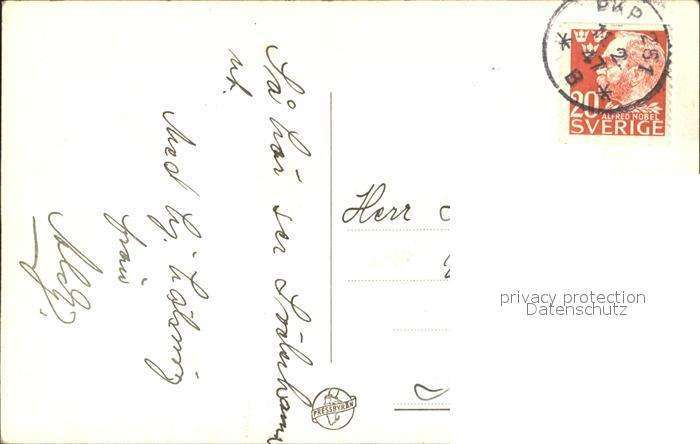 Så här ser Söderhamn
ut.
Med hj. hälsning
från
Herr
PKP 251
2.47
* B *
20
ALFRED NOBEL
SVERIGE
PRESSBYRÅN
privacy protection
Datenschutz